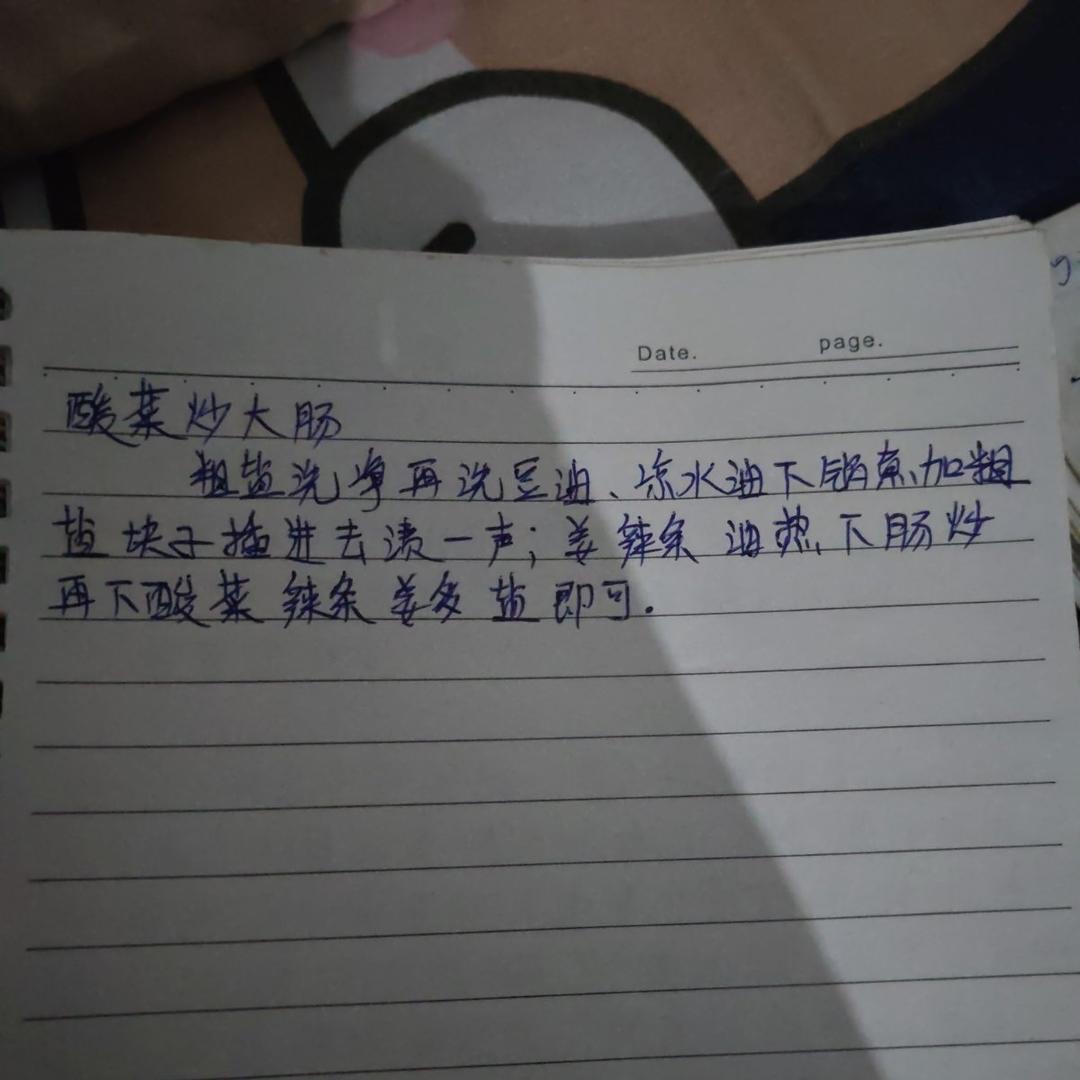 Date. page.
酸菜炒大肠
粗盐洗净再洗豆油、凉水油下锅煮、加粗
盐块子插进去渍一声；姜辣条油热、下肠炒
再下酸菜辣条姜多盐即可.